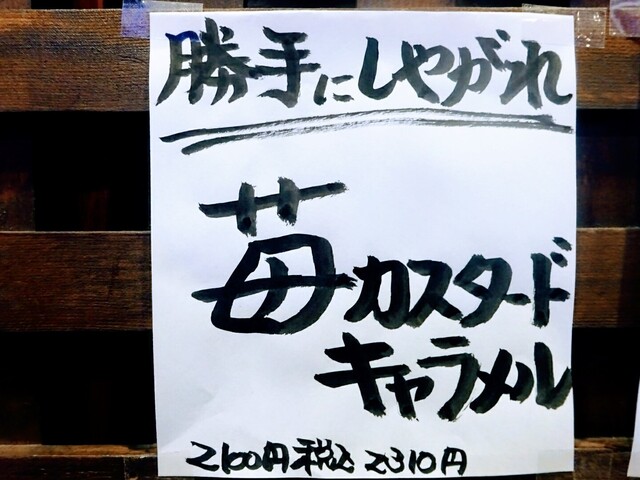 勝手にしやがれ
苺カスタード
キャラメル
2100円税込2310円